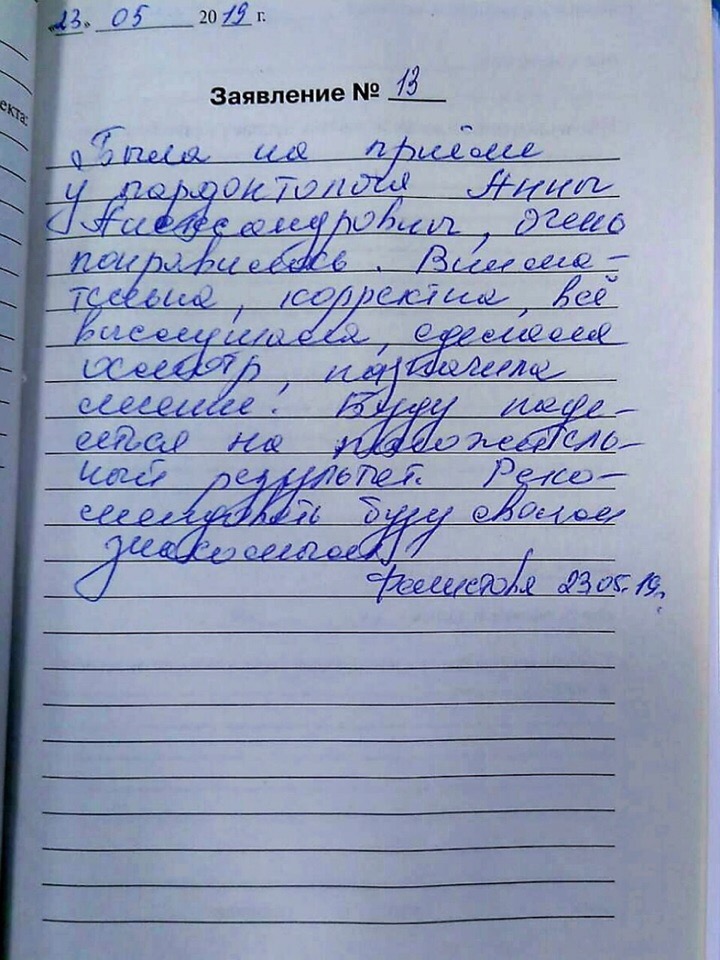 екта:
«23» 05 2019 г.
Заявление № 13
Была на приёме
у пародонтолога Анны
Александровны, очень
понравилось. Внима-
тельна, корректна, всё
выслушала, сделала
осмотр, назначила
лечение. Буду наде-
яться на положитель-
ный результат. Реко-
мендовать буду своим
знакомым
23.05.19г.